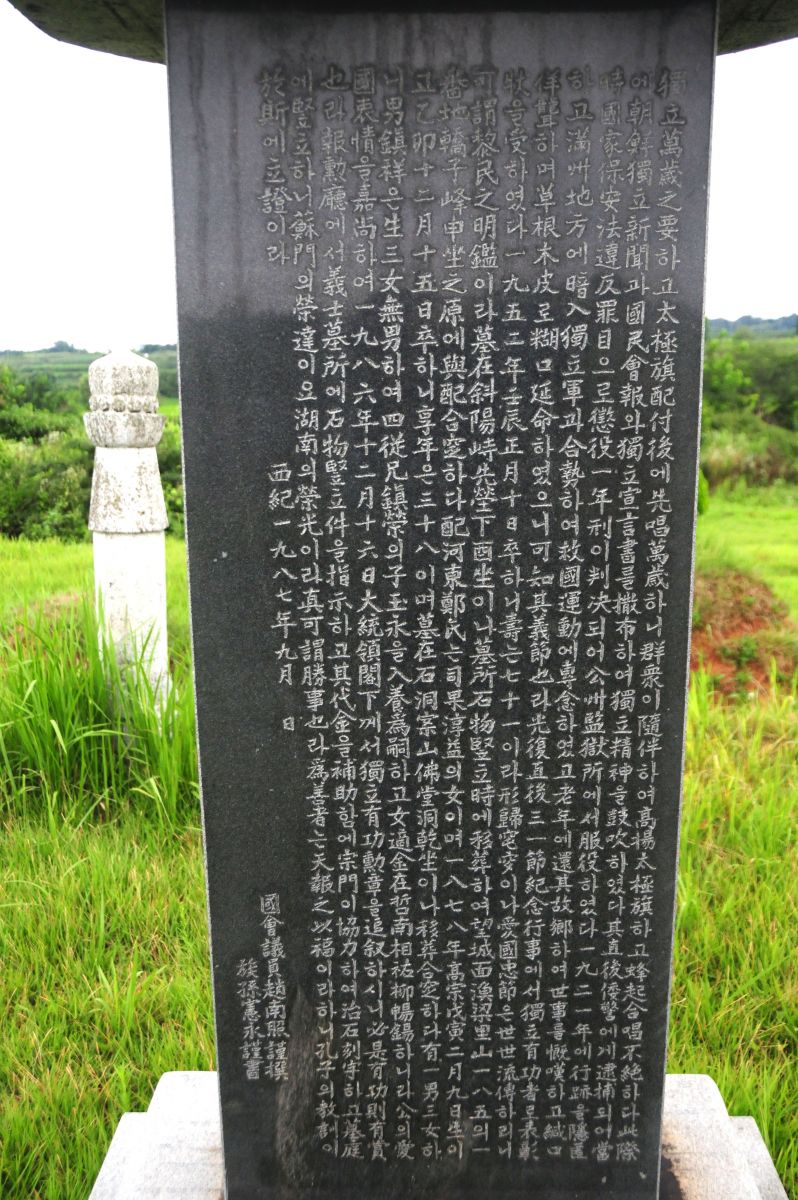 獨立萬歲之要하고太極旗配付後에先唱萬歲하니群衆이隨伴하여高揚太極旗하고蜂起合唱不絶하다此際
에朝鮮獨立新聞과國民會報와獨立宣言書를撒布하여獨立精神을鼓吹하였다其直後倭警에게逮捕되어當
時國家保安法違反罪目으로懲役一年刑이判決되어公州監獄所에서服役하였다一九二一年에行跡을隱匿
하고滿州地方에暗入獨立軍과合勢하여救國運動에專念하였고老年에還其故鄕하여世事를慨嘆하고緘口
佯聾하며草根木皮로糊口延命하였으니可知其義節也라光復直後三一節紀念行事에서獨立有功者로表彰
狀을受하였다一九五二年壬辰正月十日卒하니壽는七十一이라形歸窀穸이나愛國忠節은世世流傳하리니
可謂黎民之明鑑이라墓在斜陽峙先塋下酉坐이나墓所石物竪立時에移葬하여望城面漁梁里山一八五의一
番地轎子峰申坐之原에與配合窆하다配河東鄭氏는司果淳益의女이며一八七八年高宗戊寅二月九日生이
고乙卯十二月十五日卒하니享年은三十八이며墓在石洞案山佛堂洞乾坐이나移葬合窆하다有一男三女하
니男鎭祥은生三女無男하여四從兄鎭榮의子至永을入養爲嗣하고女適金在哲南相祐柳暢錫하니라公의愛
國衷情을嘉尙하여一九八六年十二月十六日大統領閣下께서獨立有功勳章을追敍하시니必是有功則有賞
也라報勳廳에서義士墓所에石物竪立件을指示하고其代金을補助함에宗門이協力하여治石刻字하고墓庭
에竪立하니蘇門의榮達이요湖南의榮光이라眞可謂勝事也라爲善者는天報之以福이라하니孔子의敎訓이
於斯에立證이라
西紀一九八七年九月 日
國會議員趙南照謹撰
族孫憲永謹書